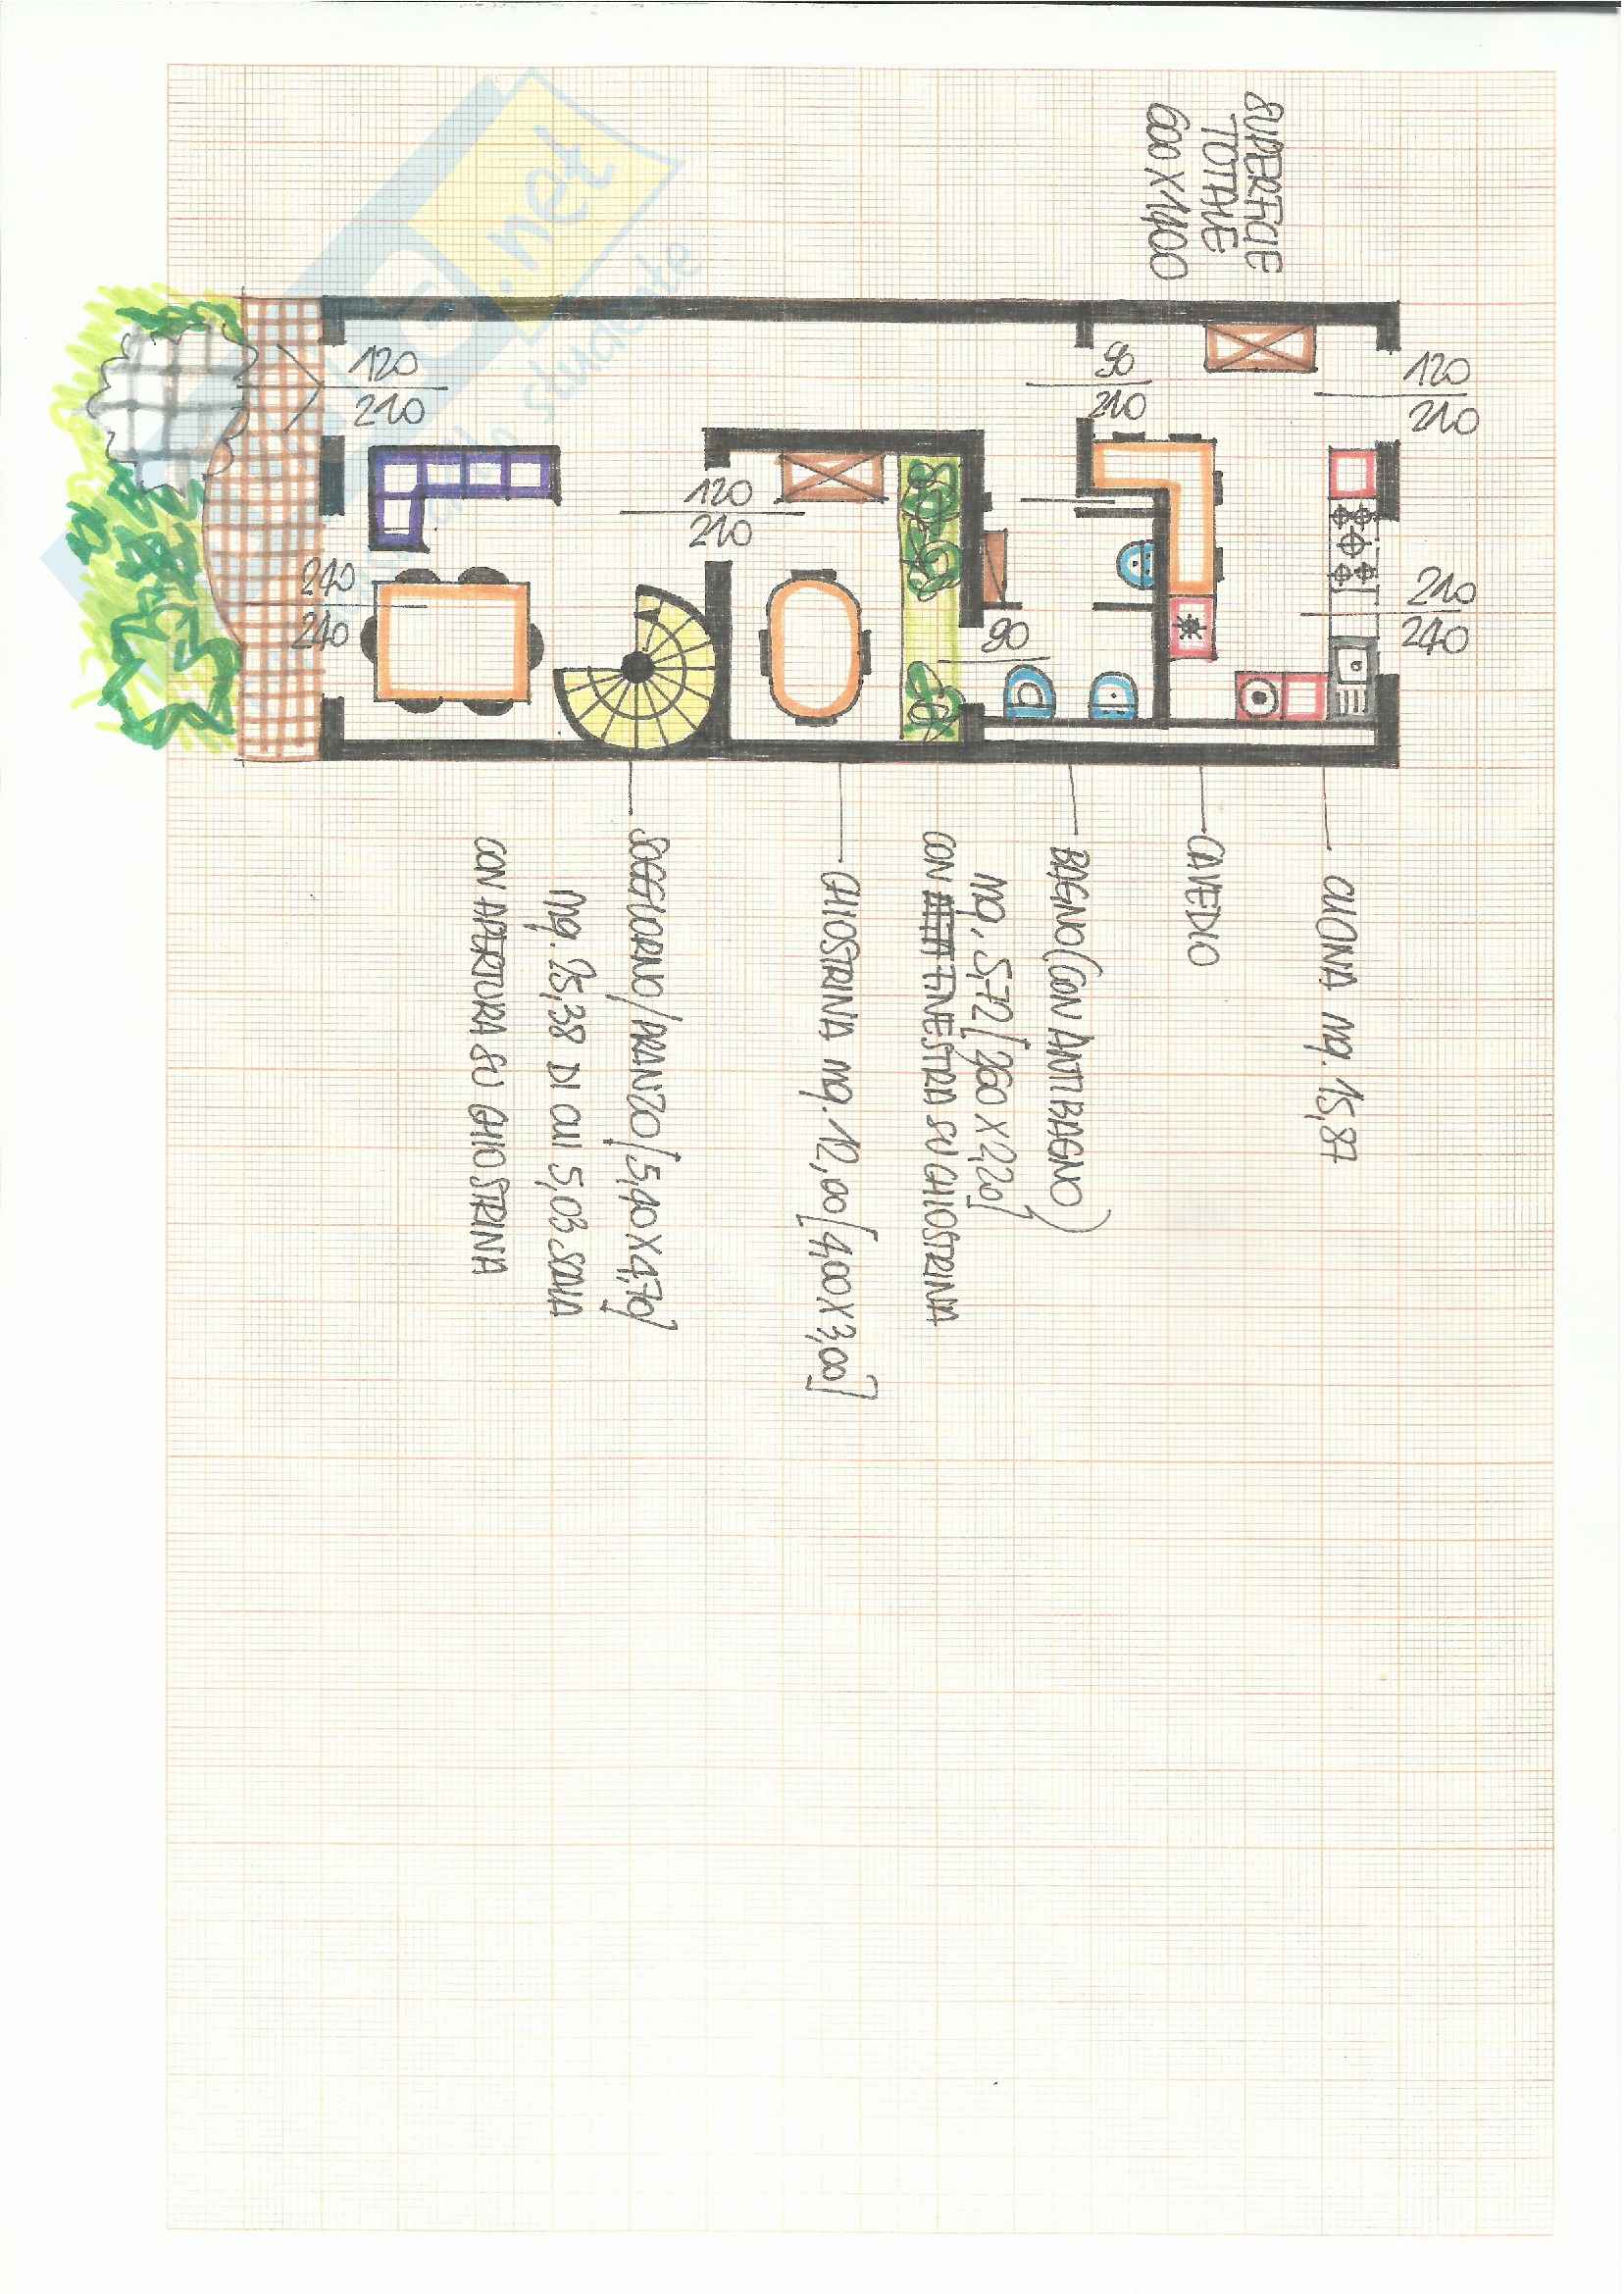 SUPERFICIE
TOTALE
600 X 1400
120
210
90
210
120
210
120
210
240
240
210
240
90
CUCINA mq. 15,87
CAVEDIO
BAGNO (CON ANTIBAGNO)
mq. 5,72 [260 X 2,20]
CON FINESTRA SU CHIOSTRINA
CHIOSTRINA mq. 12,00 [4,00 X 3,00]
SOGGIORNO/PRANZO [5,40 X 4,70]
mq. 25,38 DI CUI 5,03 SCALA
CON APERTURA SU CHIOSTRINA
.net